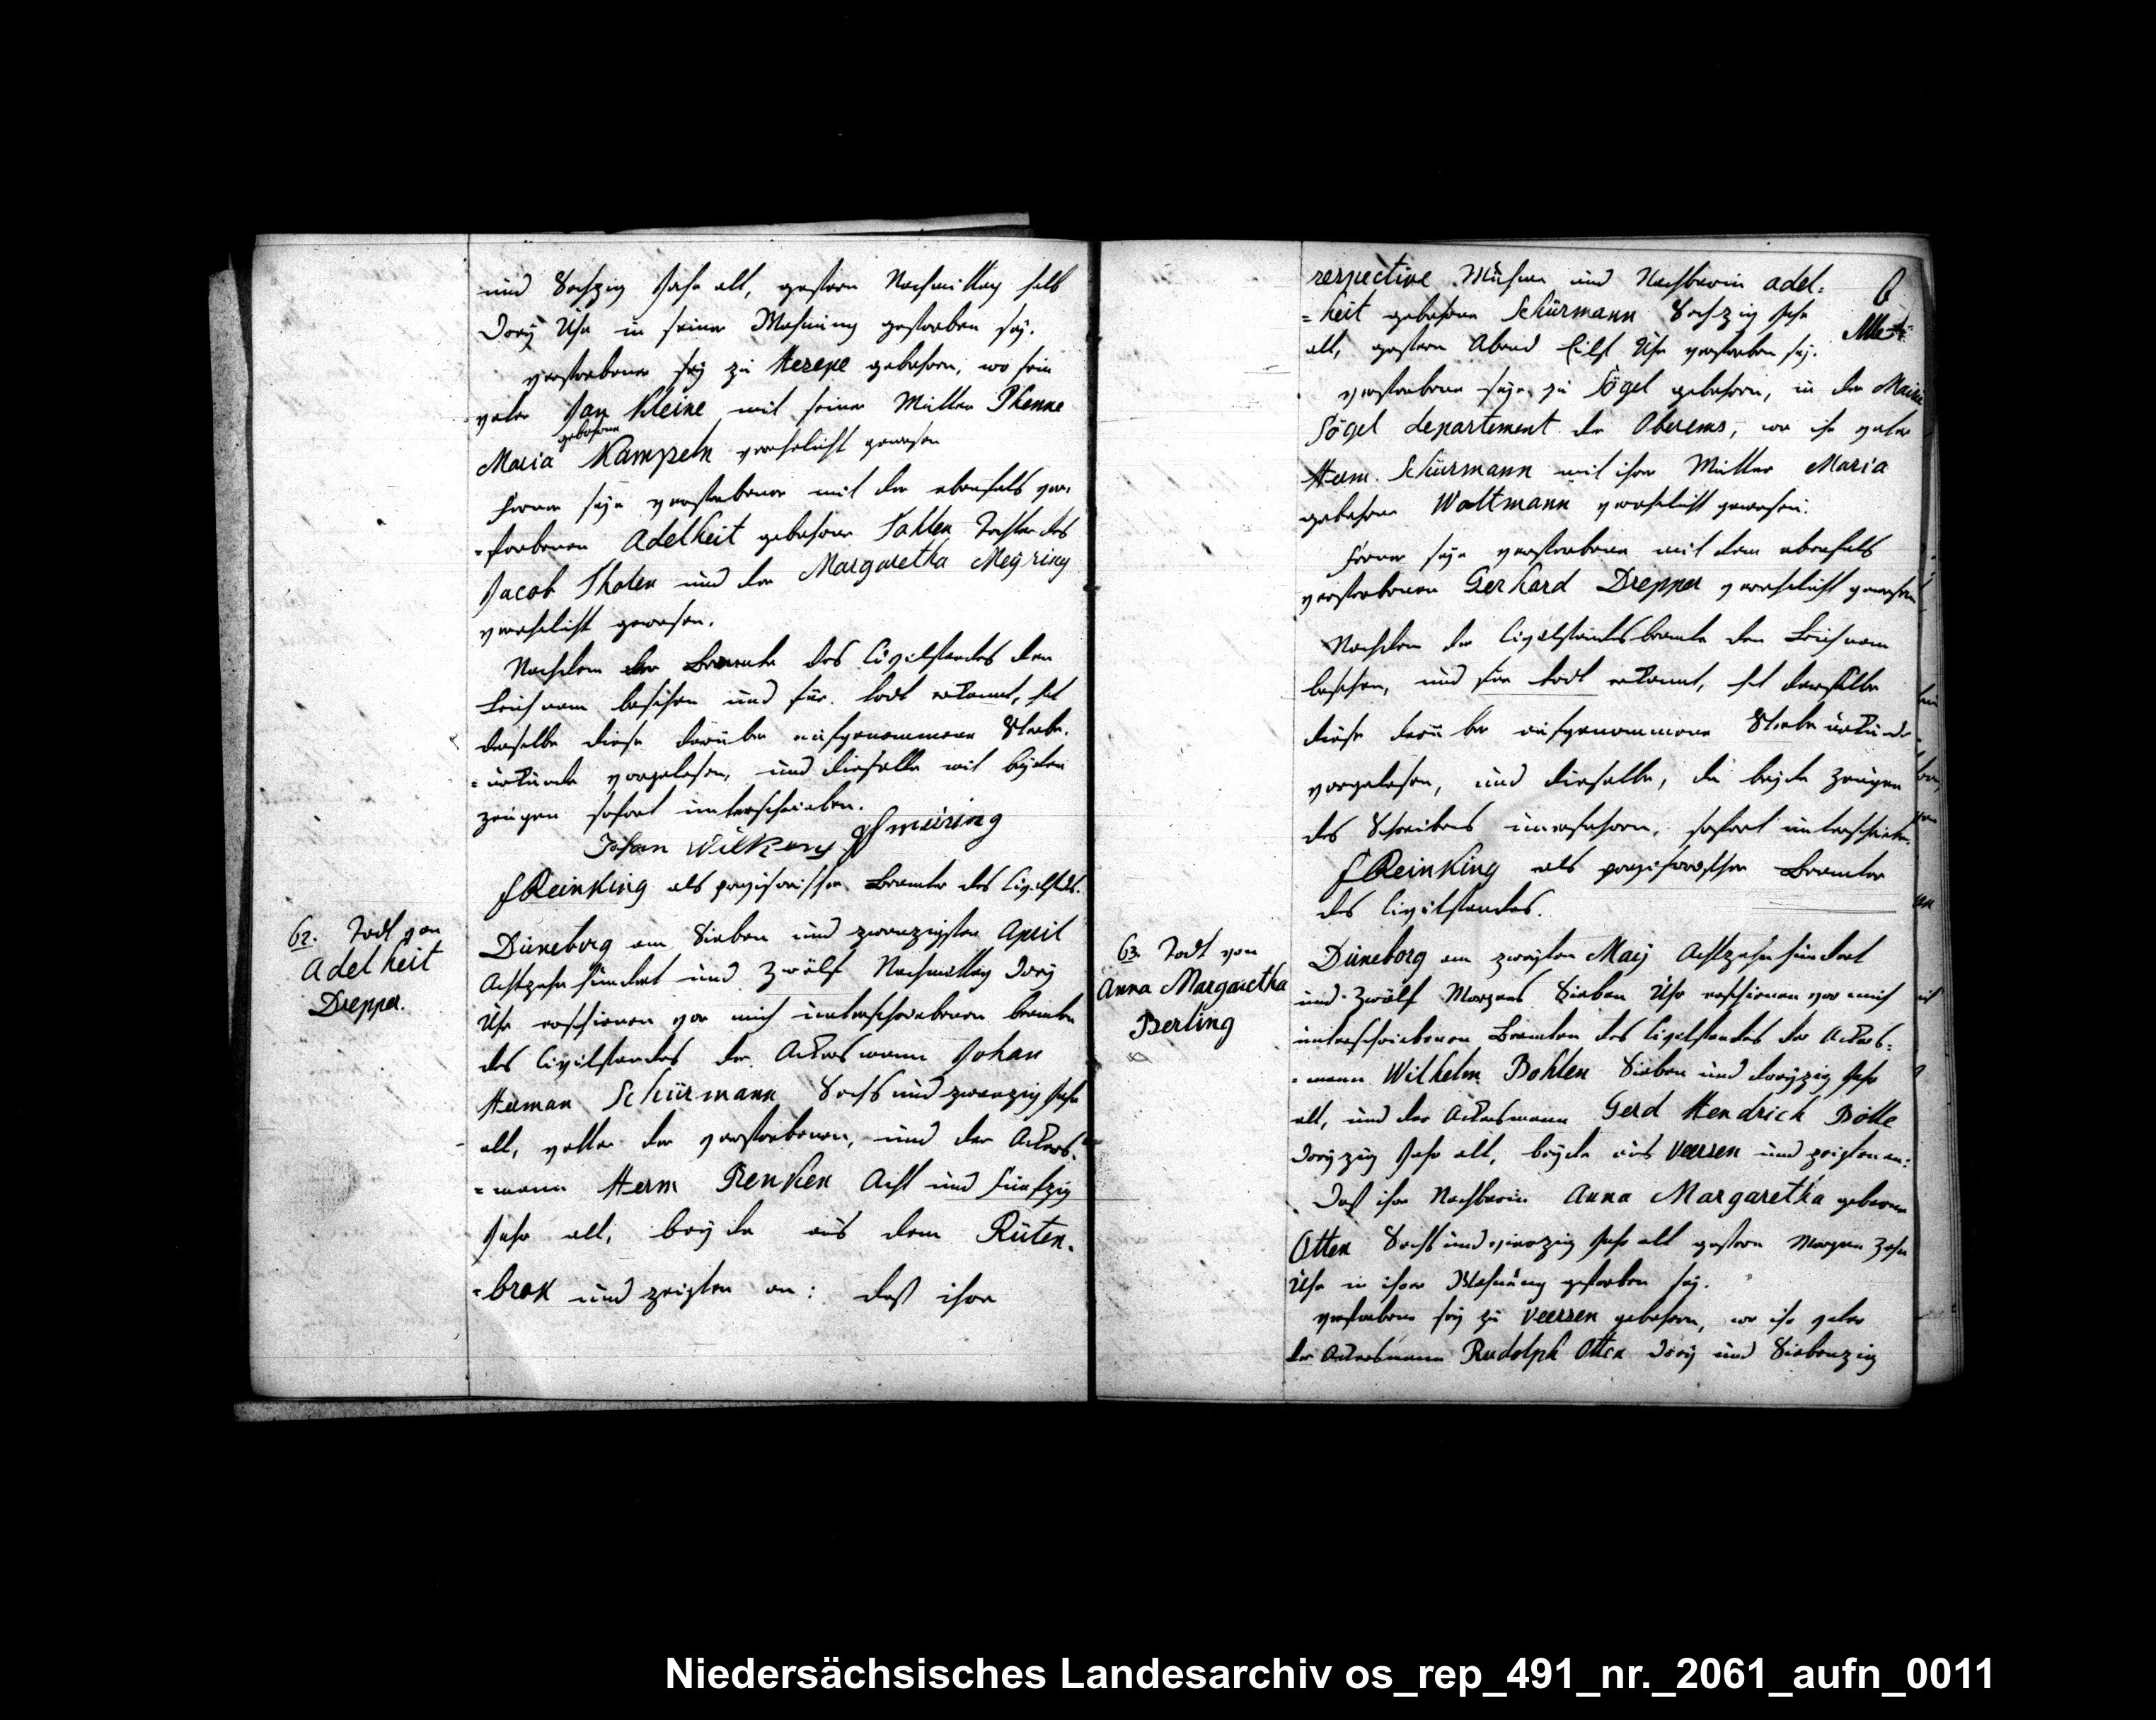 und Sechzig Jahr alt, gestern Nachmittag halb
Drey Uhr in seiner Wohnung gestorben sey.
verstorbener sey zu Hesepe gebohren, wo sein
vater Jan Kleine mit seiner Mutter Phenne
Maria gebohrne Kampeln verehelicht gewesen
ferner seye verstorbener mit der ebenfals ver-
=storbenen Adelheit gebohrne Tahlen Tochter des
Jacob Tholen und der Margaretha Meyring
verehelicht gewesen.
Nachdem der Beamte des Civilstandes den
Leichnam besehen und für todt erkannt, hat
derselbe diese darüber aufgenommene Sterbe-
=urkunde vorgelesen, und dieselbe mit beyden
zeugen sofort unterschrieben.
Johan Wilkens
FReinking als provisorischer Beamter des Civilstds.
62. Todt von
Adelheit
Drepper.
Düneborg am Sieben und zwanzigsten April
Achtzehnhundert und Zwölf Nachmittag Drey
Uhr erschienen vor mich unterschriebenen beamten
des Civilstandes der Ackersmann Johan
Herman Schürmann Sechs und zwanzig Jahr
alt, vetter der verstorbenen, und der Ackers-
=mann Herm Renken Acht und Fünfzig
Jahr alt, beyde aus dem Rüten-
=brok und zeigten an: daß ihre
respective Muhme und Nachbarin Adel=
=heit gebohrne Schürmann Sechzig Jahr
alt, gestern Abend Eilf Uhr verstorben sey.
verstorbene seye zu Sögel gebohren, in der Mairie
Sögel departement der Oberems, wo ihr vater
Herm. Schürmann mit ihrer Mutter Maria
gebohrne Woltmann verehelicht gewesen.
Ferner seye verstorbene mit dem ebenfals
verstorbenen Gerhard Drepper verehelicht gewesen
Nachdem der Civilstandesbeamte den Leichnam
besehen, und für todt erkannt, hat derselbe
diese darüber aufgenommene Sterbeurkunde
vorgelesen, und dieselbe, da beyde Zeugen
des Schreibens unerfahren, sofort unterschrieben.
FReinking als provisorischer Beamter
des Civilstandes.
63. Todt von
Anna Margaretha
Berling
Düneborg am zweyten May Achtzehnhundert
und Zwölf Morgens Sieben Uhr erschienen vor mich
unterschriebenen Beamten des Civilstandes der Ackers=
=mann Wilhelm Bohlen Sieben und dreyzig Jahr
alt, und der Ackersmann Gerd Hendrich Bölle
Dreyzig Jahr alt, beyde aus Veersen und zeigten an:
Daß ihre Nachbarin Anna Margaretha gebohrne
Otten Sechs und vierzig Jahr alt gestern Morgen Zehn
Uhr in ihrer Wohnung gestorben sey.
verstorbene sey zu Veersen gebohren, wo ihr vater
der Ackersmann Rudolph Otten Drey und Siebenzig
Niedersächsisches Landesarchiv os_rep_491_nr._2061_aufn_0011